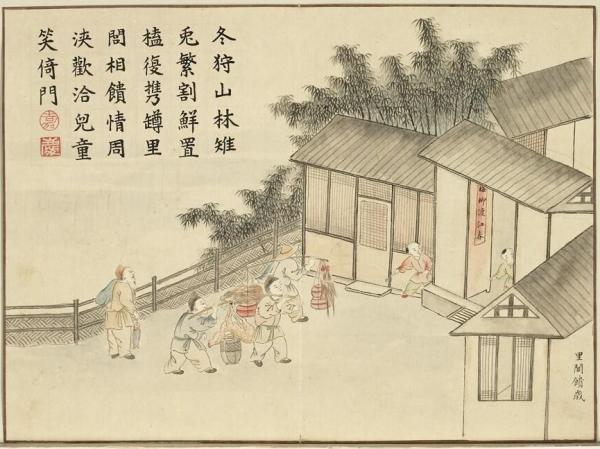 冬狩山林雉
兔繁割鮮置
榼復携罇里
閭相饋情周
浹歡洽兒童
笑倚門
梅柳渡江春
里閭饋歲